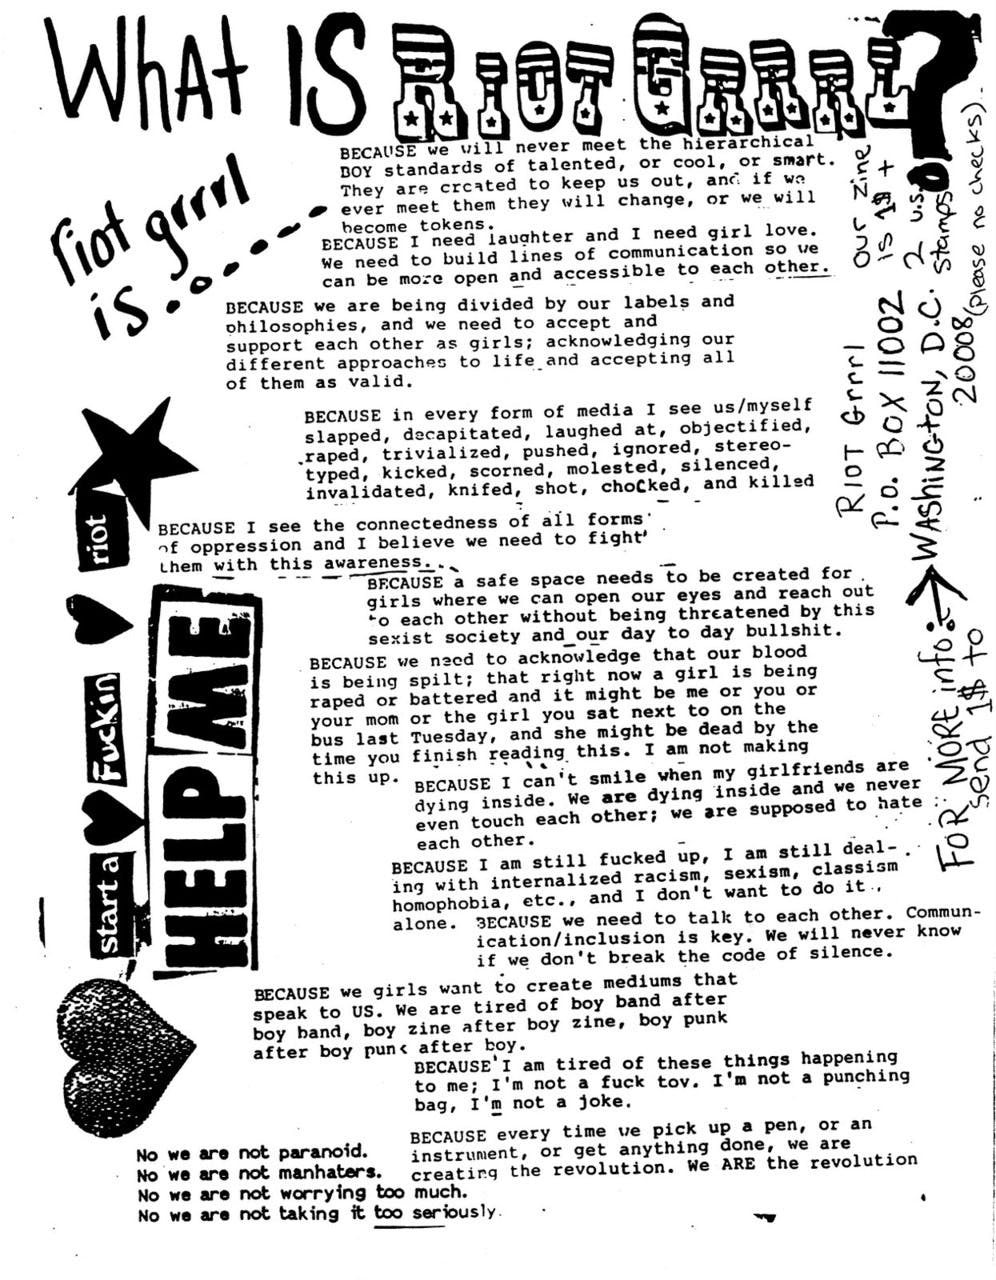 WhAt IS RIOT GRRRL?
riot grrrl
is.......
BECAUSE we will never meet the hierarchical
BOY standards of talented, or cool, or smart.
They are created to keep us out, and if we
ever meet them they will change, or we will
become tokens.
BECAUSE I need laughter and I need girl love.
We need to build lines of communication so we
can be more open and accessible to each other.
BECAUSE we are being divided by our labels and
philosophies, and we need to accept and
support each other as girls; acknowledging our
different approaches to life and accepting all
of them as valid.
BECAUSE in every form of media I see us/myself
slapped, decapitated, laughed at, objectified,
raped, trivialized, pushed, ignored, stereo-
typed, kicked, scorned, molested, silenced,
invalidated, knifed, shot, choCked, and killed
BECAUSE I see the connectedness of all forms
of oppression and I believe we need to fight
them with this awareness...
BECAUSE a safe space needs to be created for
girls where we can open our eyes and reach out
to each other without being threatened by this
sexist society and our day to day bullshit.
BECAUSE we need to acknowledge that our blood
is being spilt; that right now a girl is being
raped or battered and it might be me or you or
your mom or the girl you sat next to on the
bus last Tuesday, and she might be dead by the
time you finish reading this. I am not making
this up.
BECAUSE I can't smile when my girlfriends are
dying inside. We are dying inside and we never
even touch each other; we are supposed to hate
each other.
BECAUSE I am still fucked up, I am still deal-
ing with internalized racism, sexism, classism
homophobia, etc., and I don't want to do it
alone.
BECAUSE we need to talk to each other. Commun-
ication/inclusion is key. We will never know
if we don't break the code of silence.
BECAUSE we girls want to create mediums that
speak to US. We are tired of boy band after
boy band, boy zine after boy zine, boy punk
after boy punk after boy.
BECAUSE I am tired of these things happening
to me; I'm not a fuck toy. I'm not a punching
bag, I'm not a joke.
BECAUSE every time we pick up a pen, or an
instrument, or get anything done, we are
creating the revolution. We ARE the revolution
No we are not paranoid.
No we are not manhaters.
No we are not worrying too much.
No we are not taking it too seriously.
start a
Fuckin
riot
HELP ME
our zine
is 1$ +
2 U.S.
stamps
(please no checks)
FOR MORE info:
send 1$ to
RIOT Grrrl
P.O. BOX 11002
WAShiNGtON, D.C.
20008